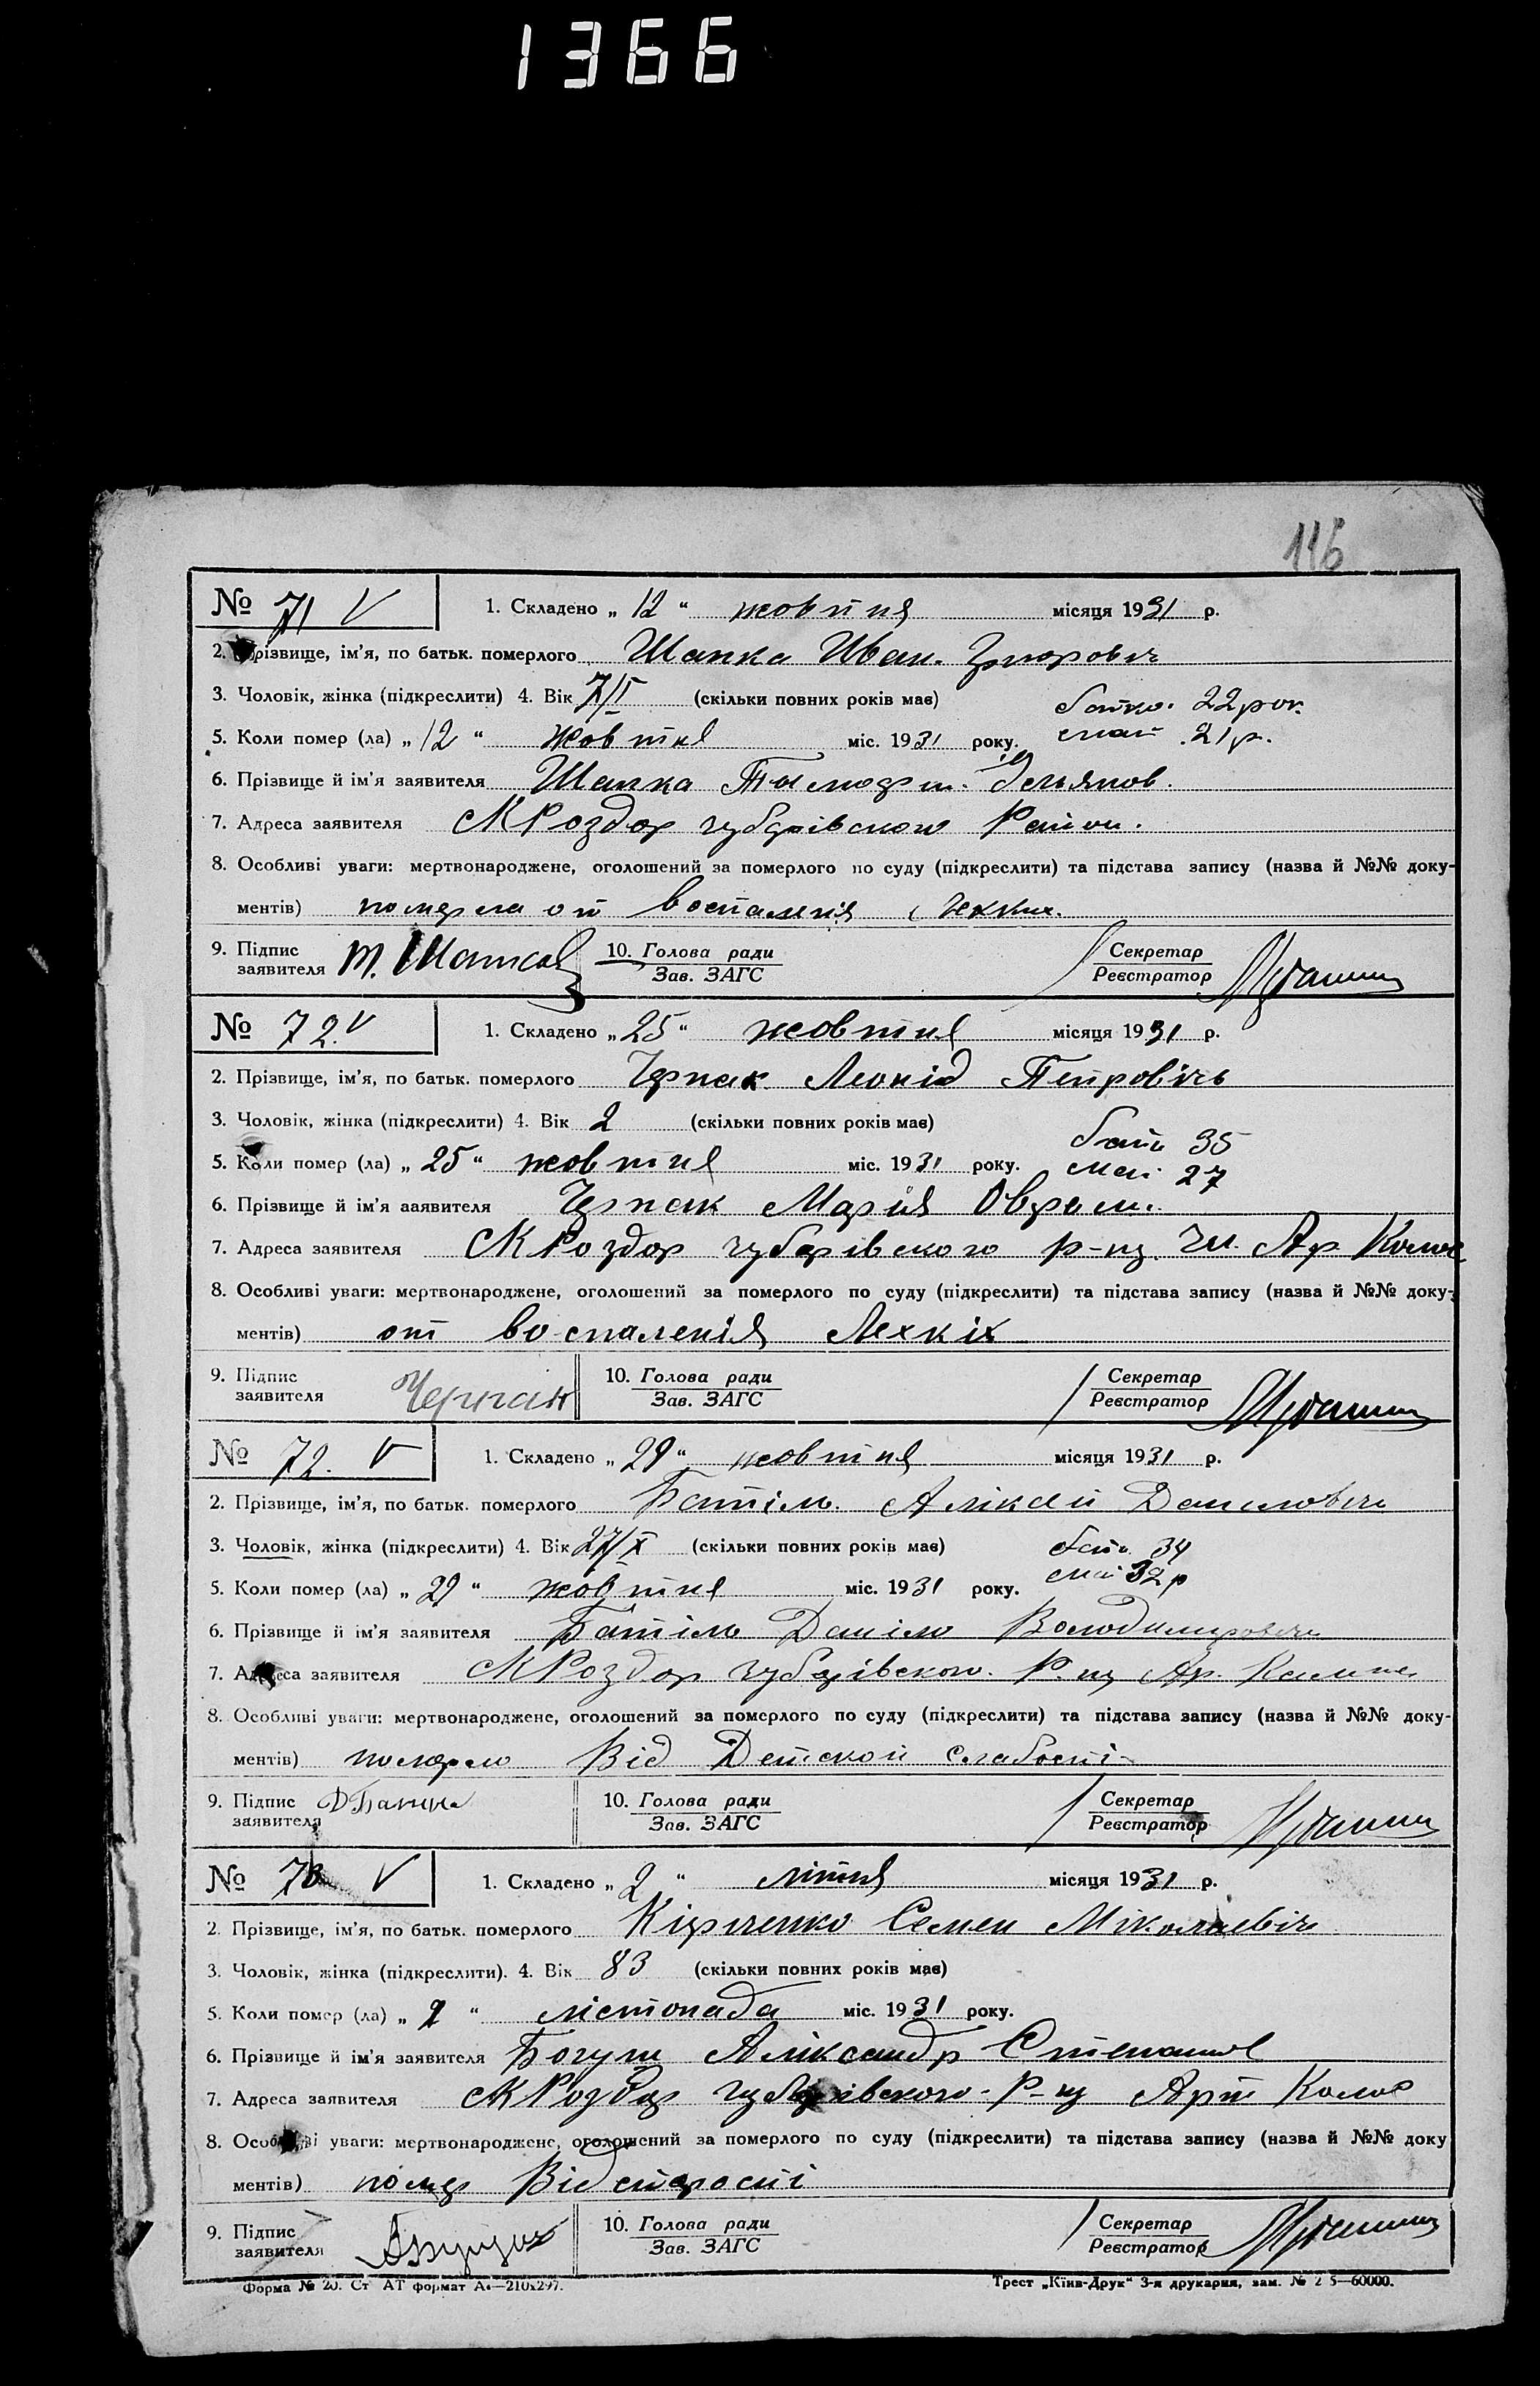 1366
116
№ 71 V 1. Складено „ 12 “ жовтня місяця 1931 р.
2. Прізвище, ім’я, по батьк. померлого Шапка Иван.
3. Чоловік, жінка (підкреслити) 4. Вік (скільки повних років має) батко. 22 рок.
5. Коли помер (ла) „ 12 “ жовтня міс. 1931 року. мат 21 р.
6. Прізвище й ім’я заявителя Шапка
7. Адреса заявителя М Роздор чубарівского Район.
8. Особливі уваги: мертвонароджене, оголошений за померлого по суду (підкреслити) та підстава запису (назва й №№ доку-
ментів) померла от
9. Підпис 10. Голова ради Секретар
заявителя Зав. ЗАГС Реєстратор
№ 72. V 1. Складено „ 25 “ жовтня місяця 1931 р.
2. Прізвище, ім’я, по батьк. померлого Чрпак Леонід Петровічь
3. Чоловік, жінка (підкреслити) 4. Вік 2 (скільки повних років має) бать 35
5. Коли помер (ла) „ 25 “ жовтня міс. 1931 року. мат 27
6. Прізвище й ім’я заявителя Чрпак Марія Оврам.
7. Адреса заявителя М Роздор чубарівского р-ну. Чл. Ар Колос
8. Особливі уваги: мертвонароджене, оголошений за померлого по суду (підкреслити) та підстава запису (назва й №№ доку-
ментів) от воспаленія Лехкіх
9. Підпис 10. Голова ради Секретар
заявителя Черпак Зав. ЗАГС Реєстратор
№ 72. V 1. Складено „ 29 “ жовтня місяця 1931 р.
2. Прізвище, ім’я, по батьк. померлого Данилович
3. Чоловік, жінка (підкреслити) 4. Вік 27/X (скільки повних років має) бать 34
5. Коли помер (ла) „ 29 “ жовтня міс. 1931 року. мат 32 р
6. Прізвище й ім’я заявителя Даніло Володимирович
7. Адреса заявителя М Роздор чубарівского. Р-ну Ар.
8. Особливі уваги: мертвонароджене, оголошений за померлого по суду (підкреслити) та підстава запису (назва й №№ доку-
ментів) померло Від Детской слабості
9. Підпис 10. Голова ради Секретар
заявителя Зав. ЗАГС Реєстратор
№ 73 V 1. Складено „ 2 “ місяця 1931 р.
2. Прізвище, ім’я, по батьк. померлого Кіриченко Семен Міколаевіч
3. Чоловік, жінка (підкреслити). 4. Вік 83 (скільки повних років має)
5. Коли помер (ла) „ 2 “ лістопада міс. 1931 року.
6. Прізвище й ім’я заявителя Александр
7. Адреса заявителя М Роздор чубарівского Р-ну Арт Колос
8. Особливі уваги: мертвонароджене, оголошений за померлого по суду (підкреслити) та підстава запису (назва й №№ доку
ментів) помер Від старості
9. Підпис 10. Голова ради Секретар
заявителя Зав. ЗАГС Реєстратор
Форма № 20. Ст АТ формат А4—210x297. Трест „Київ-Друк“ 3-я друкарня, зам. № 2 5—60000.